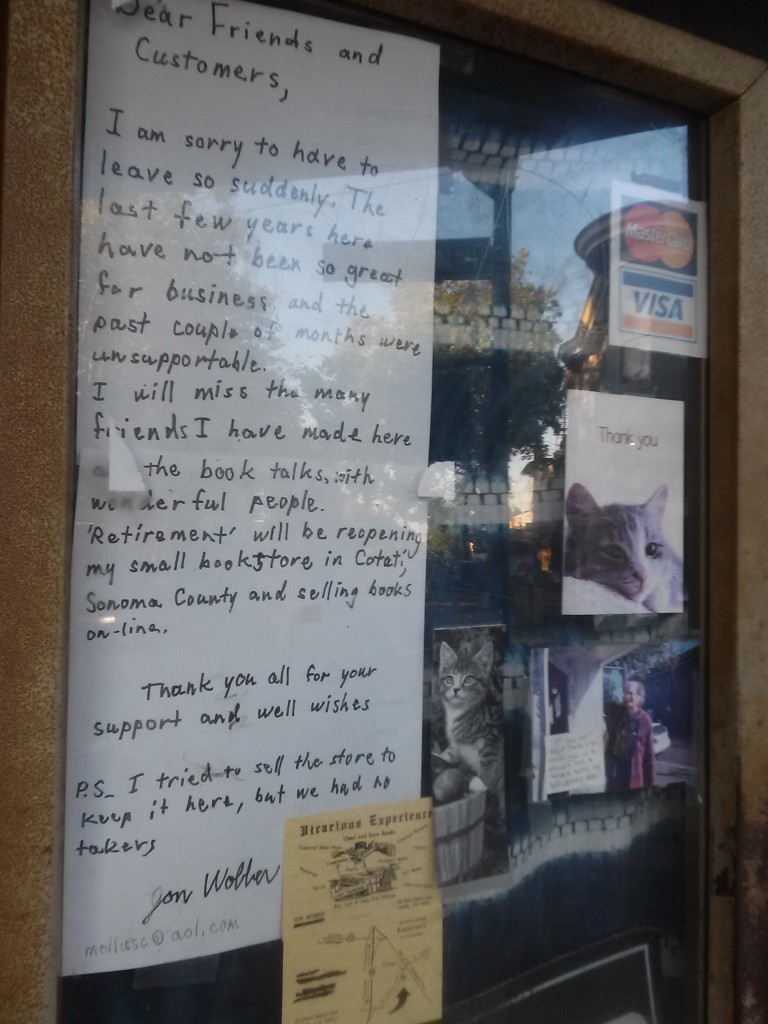 Dear Friends and
Customers,
I am sorry to have to
leave so suddenly. The
last few years here
have not been so great
for business, and the
past couple of months were
unsupportable.
I will miss the many
friends I have made here
the book talks, with
wonderful people.
'Retirement' will be reopening
my small bookstore in Cotati,
Sonoma County and selling books
on-line.
Thank you all for your
support and well wishes
P.S. I tried to sell the store to
keep it here, but we had no
takers
Jon
@aol.com
MasterCard
VISA
Thank you
Vicarious Experience
Used and Rare Books